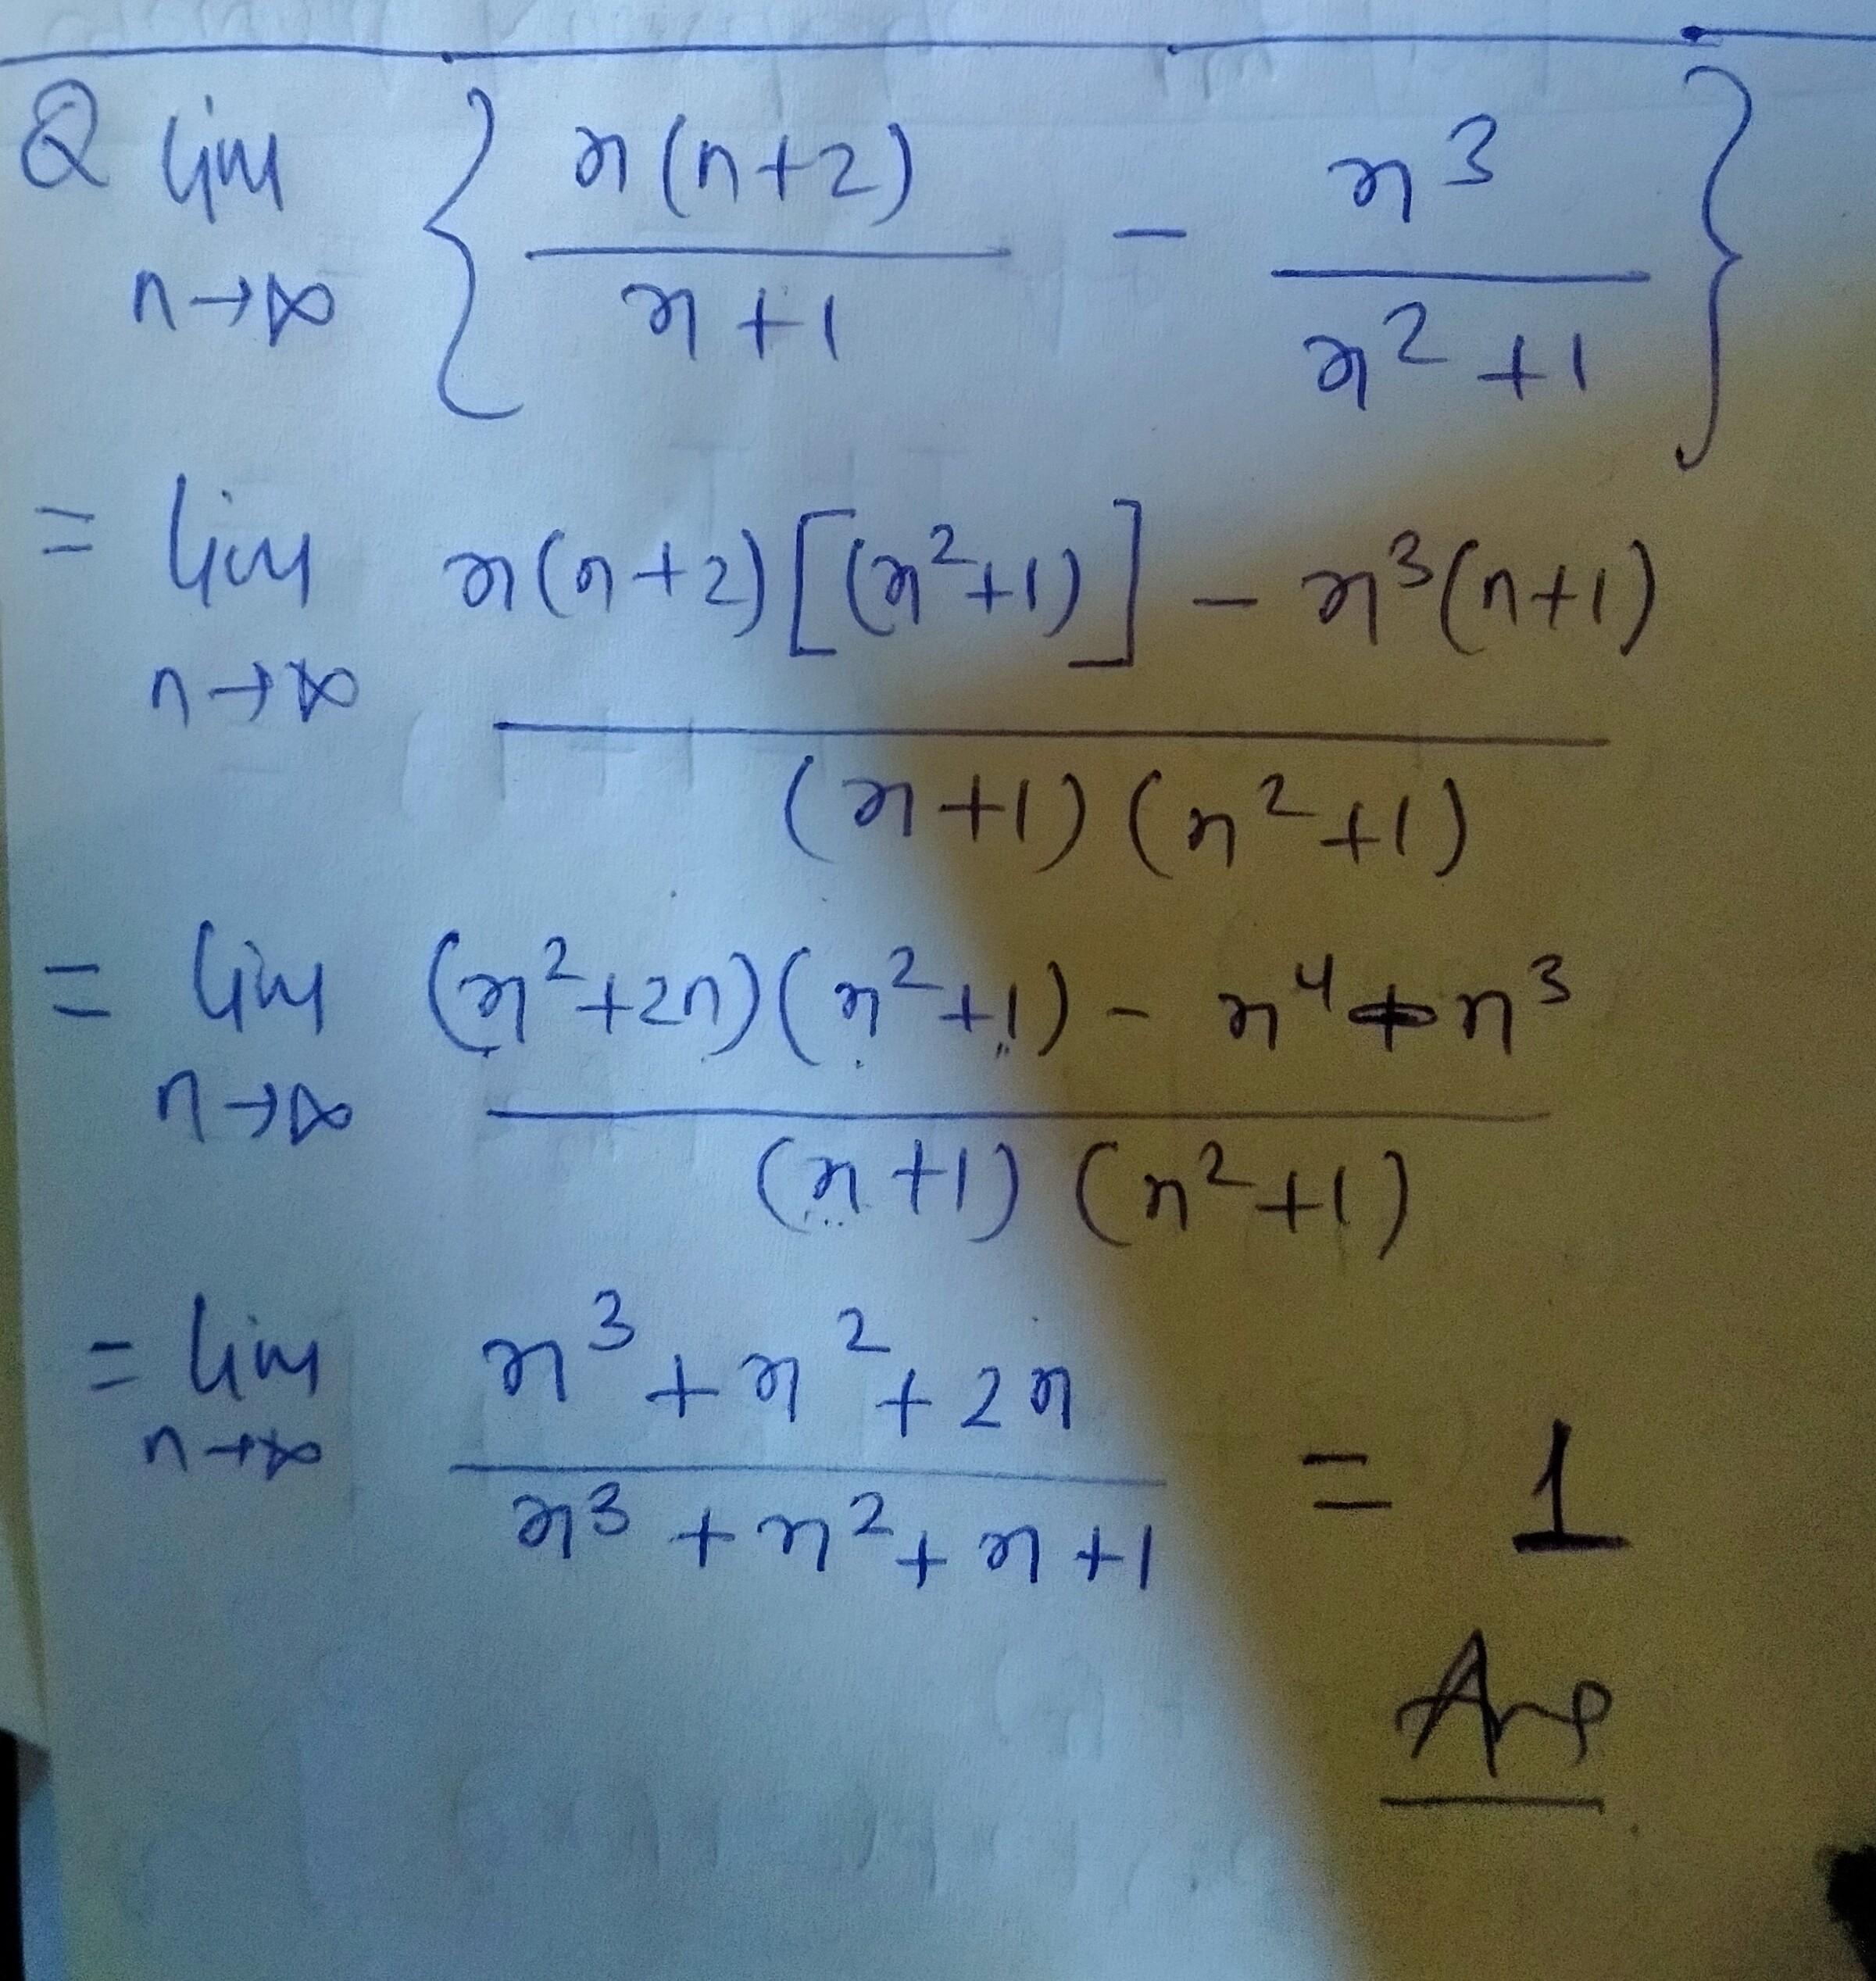 Q lim n→∞ { n(n+2) / n+1 − n³ / n²+1 }
= lim n→∞ n(n+2)[(n²+1)] − n³(n+1) / (n+1)(n²+1)
= lim n→∞ (n²+2n)(n²+1) − n⁴ − n³ / (n+1)(n²+1)
= lim n→∞ n³+n²+2n / n³+n²+n+1 = 1
Ans